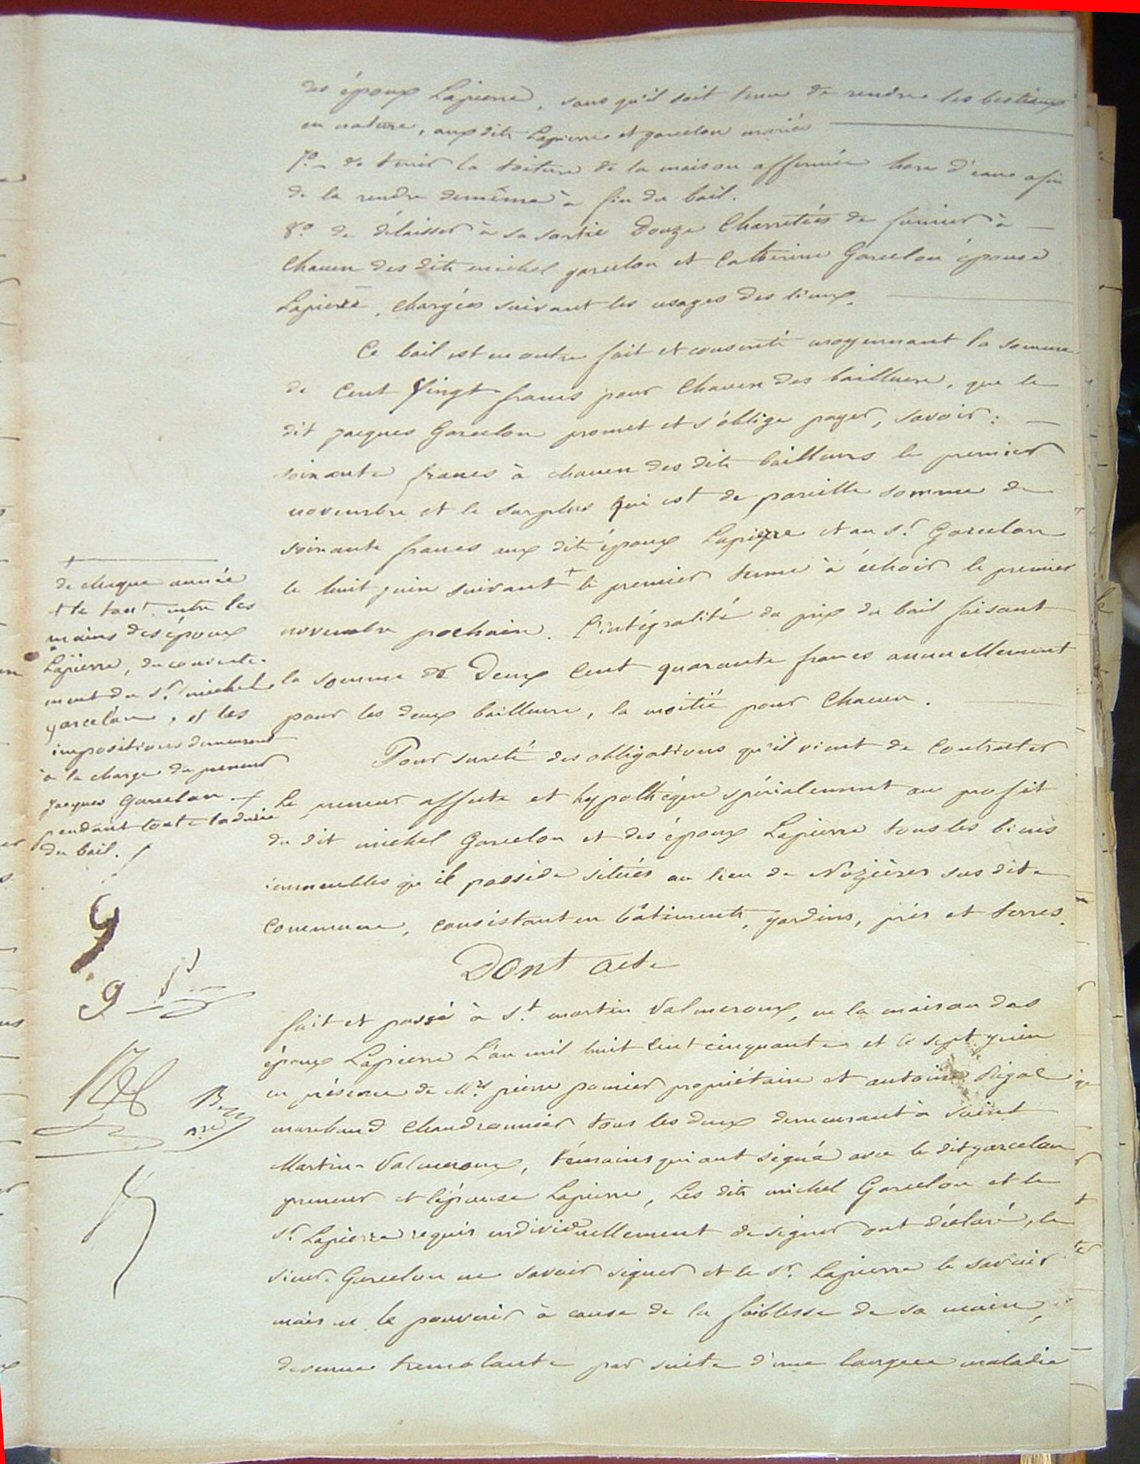 des époux Lapierre, sans qu'il soit tenu de rendre les bestiaux
en nature, aux dits Lapierre et garcelon mariés
7.o de tenir la toiture de la maison affermée hors d'eau afin
de la rendre demême à fin du bail.
8.o de délaisser à sa sortie Douze Charretées de fumier à
Chacun des dits michel garcelon et Catherine Garcelon épouse
Lapierre, chargées suivant les usages des lieux.
Ce bail est en outre fait et consenti moyennant la somme
de Cent Vingt francs pour Chacun des bailleurs, que le
dit Jacques Garcelon promet et s'oblige payer, savoir :
soixante francs à chacun des dits bailleurs le premier
novembre et le surplus qui est de pareille somme de
soixante francs aux dits époux Lapierre et au S.r Garcelon
le huit juin suivant + le premier terme à échoir le premier
novembre prochain. L'intégralité du prix du bail faisant
la somme de Deux Cent quarante francs annuellement
pour les deux bailleurs, la moitié pour Chacun.
Pour sureté des obligations qu'il vient de Contracter
Le preneur affecte et hypothèque spécialement au profit
du dit michel Garcelon et des époux Lapierre tous les biens
immeubles qu'il possède situés au lieu de Nozières susdite
Commune, consistant en bâtiments, jardins, prés et terres.
Dont acte
fait et passé à S.t martin Valmeroux, en la maison des
époux Lapierre L'an mil huit cent cinquante et le sept juin
en présence de M.rs pierre pomier propriétaire et antoine Rigal
marchand chaudronnier tous les deux demeurant à Saint
Martin-Valmeroux, témoins qui ont signé avec le dit garcelon
preneur et l'épouse Lapierre, Les dits michel Garcelon et le
S.r Lapierre requis individuellement de signer ont déclaré, le
sieur Garcelon ne savoir signer et le S.r Lapierre le savoir
mais ne le pouvoir à cause de la faiblesse de sa main,
devenue tremblante par suite d'une longue maladie
+
de chaque année
+ le tout entre les
mains des époux
Lapierre, du consente-
ment du S.r michel
garcelon, et les
impositions demeurent
à la charge du preneur
Jacques Garcelon
pendant toute la durée
du bail.
9
9